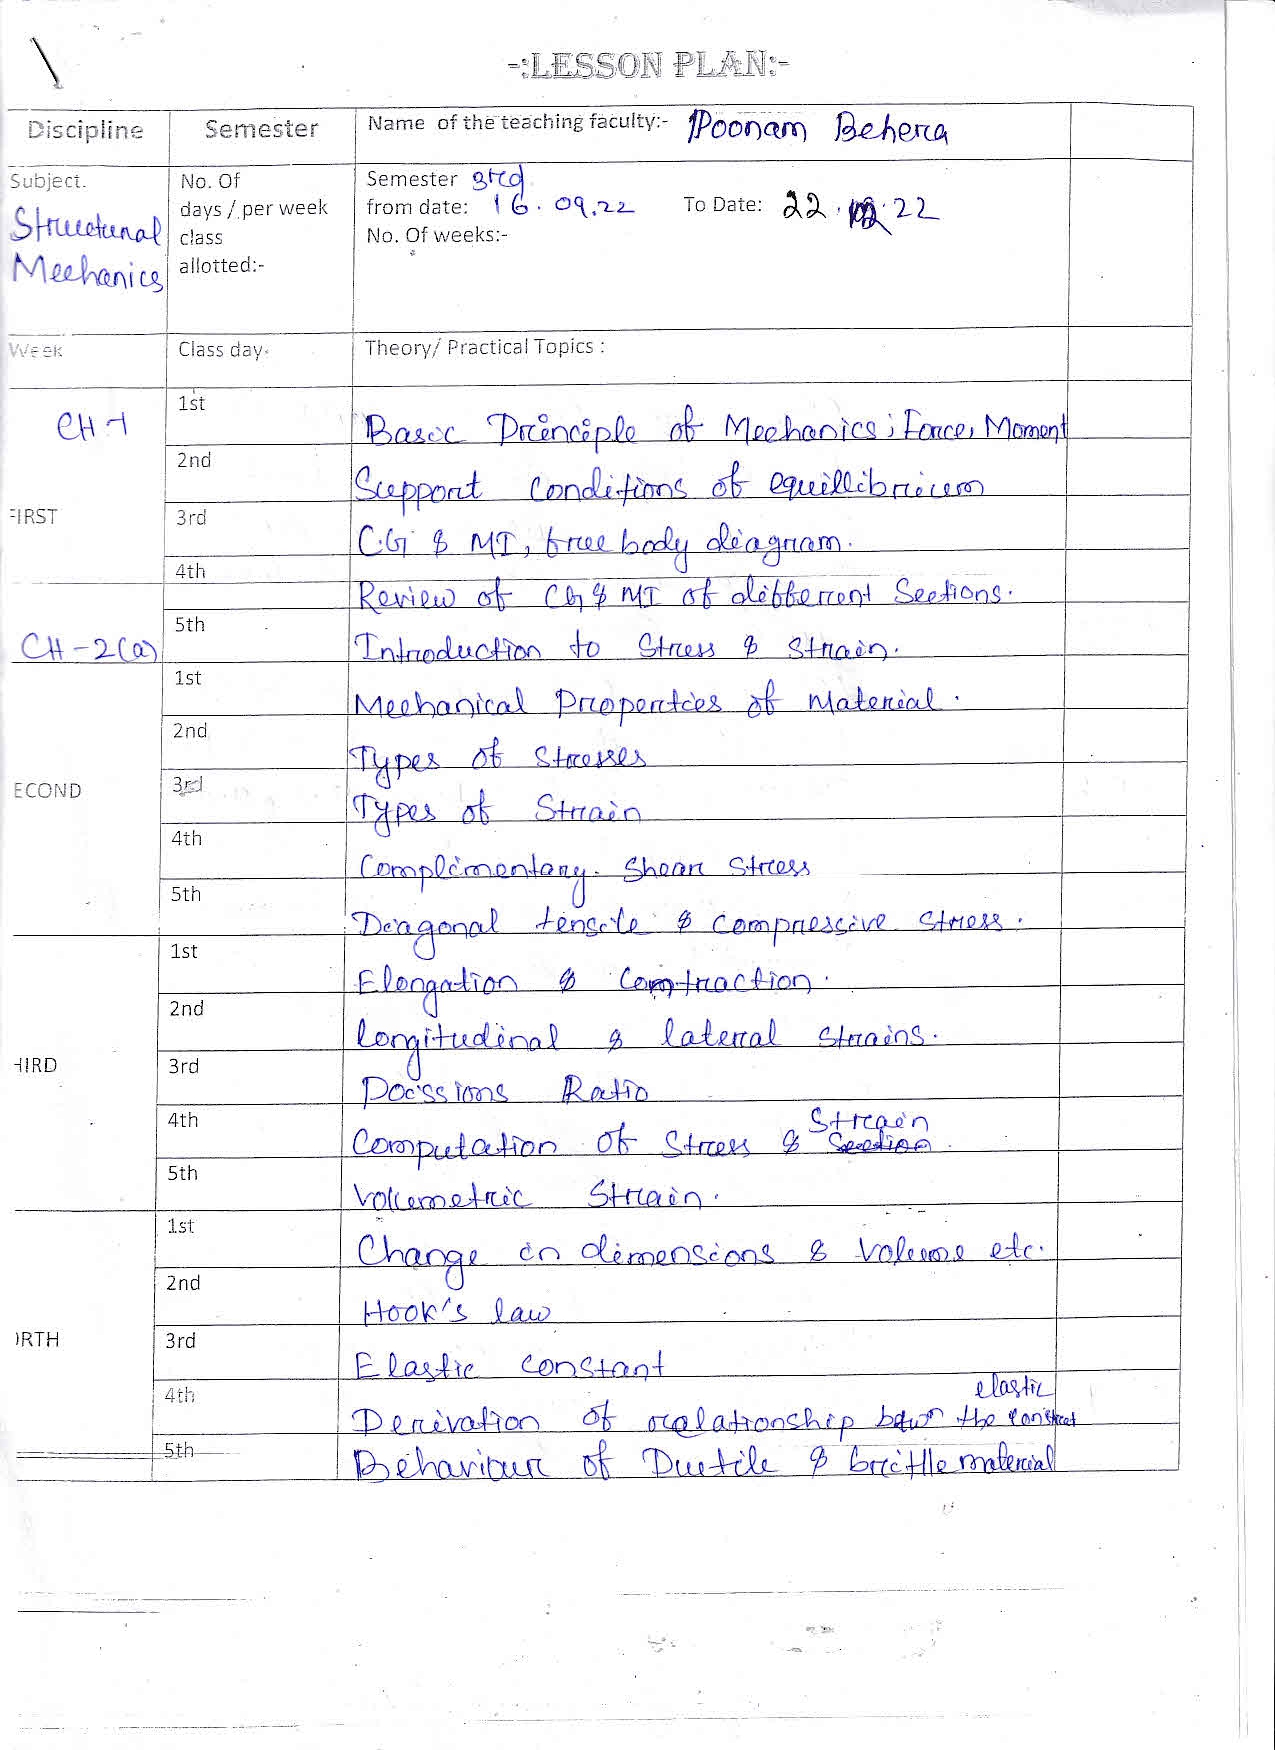 -:LESSON PLAN:-
Discipline Semester Name of the teaching faculty:- Poonam Behera
Subject. No. Of Semester 3rd
days / per week from date: 16.09.22 To Date: 22. .22
Structural class No. Of weeks:-
Mechanics allotted:-
Week Class day. Theory/ Practical Topics :
CH-1 1st Basic Principle of Mechanics; Force, Moment
2nd Support conditions of equillibrium
FIRST 3rd C.G & MI, free body diagram.
4th Review of CG & MI of different Sections.
CH-2(a) 5th Introduction to Stress & Strain.
1st Mechanical Properties of Material.
2nd Types of Stresses
ECOND 3rd Types of Strain
4th Complimentary Shear Stress
5th Diagonal tensile & Compressive Stress.
1st Elongation & Contraction.
2nd Longitudinal & lateral strains.
HIRD 3rd Poissions Ratio
Strain
4th Computation of Stress & Section
5th Volumetric Strain.
1st Change in dimensions & volume etc.
2nd Hook's law
ORTH 3rd Elastic constant
elastic
4th Derivation of relationship betwn the constnat
5th Behaviour of Ductile & brittle material